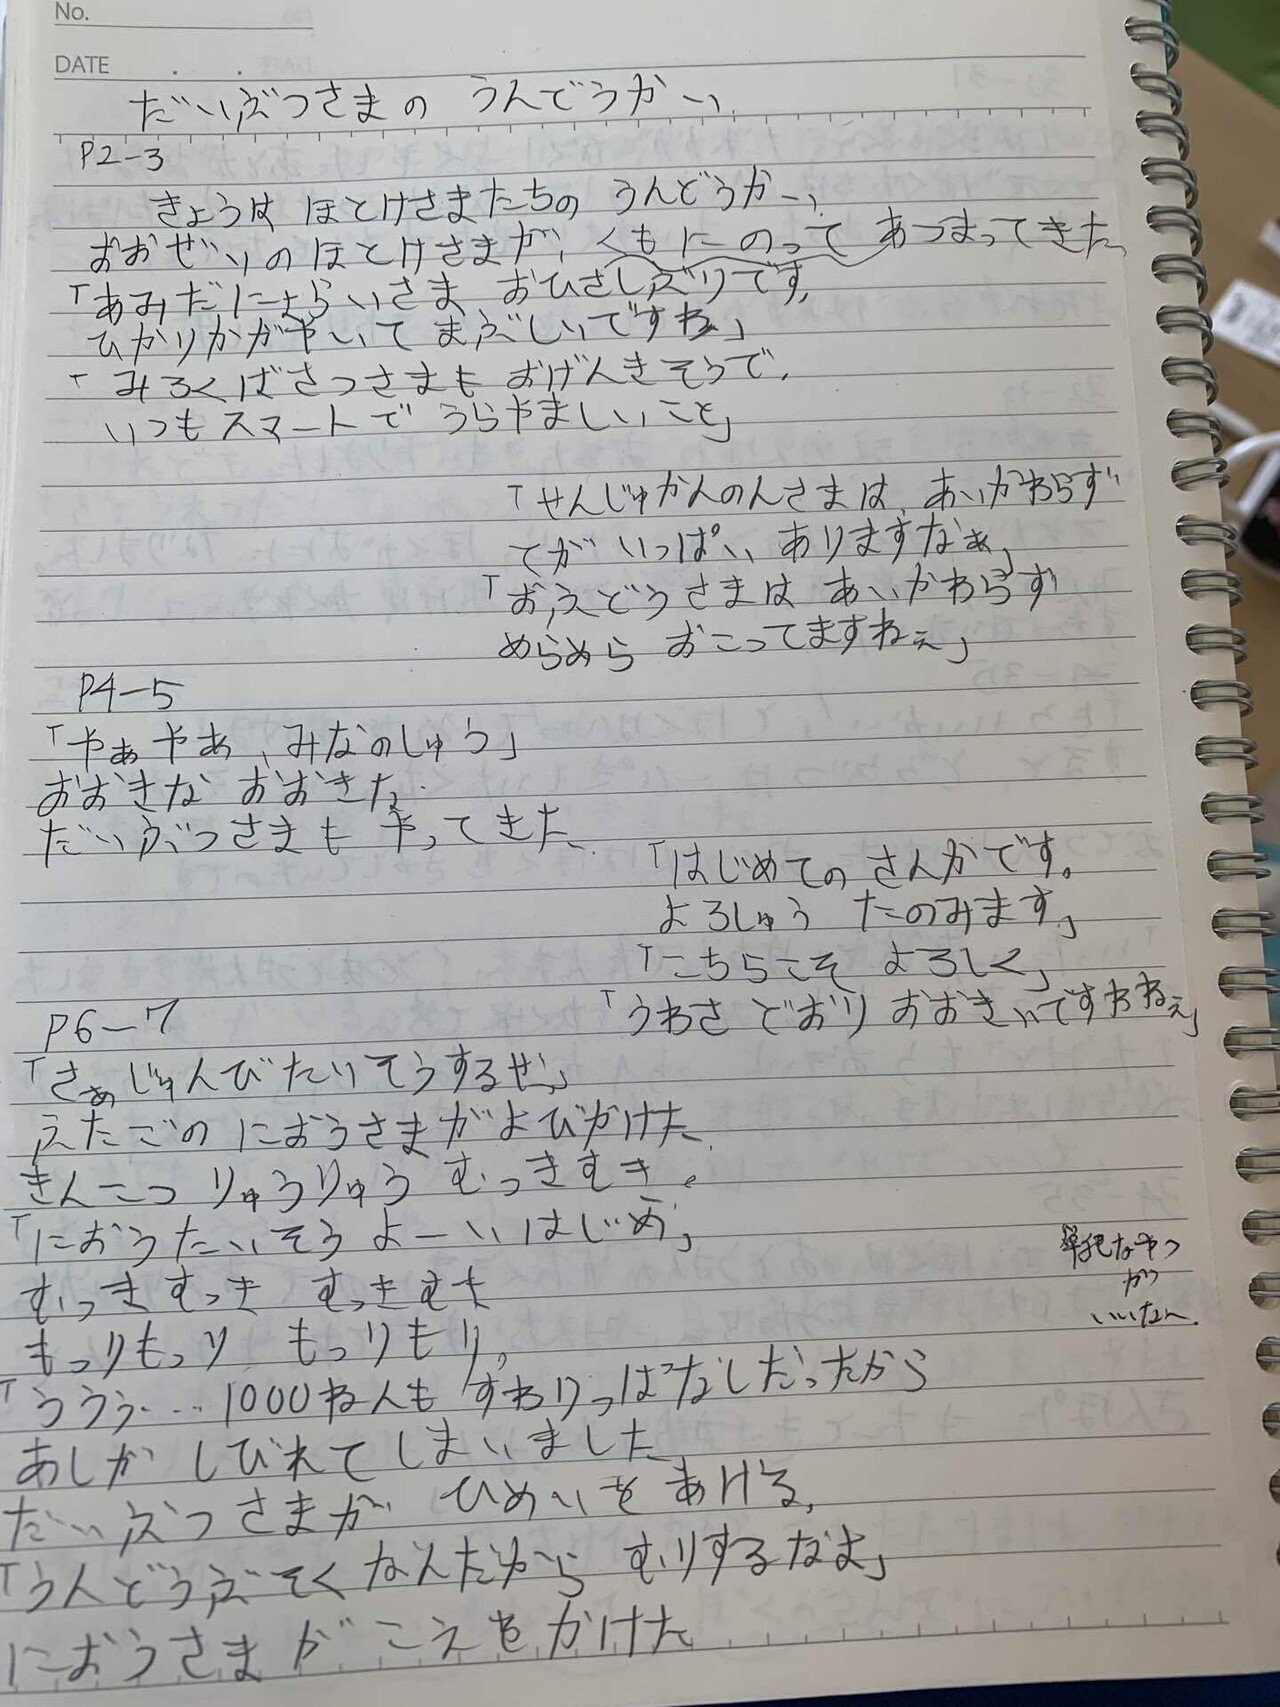 No.
DATE . .
だいぶつさまの うんどうかい
P2-3
きょうは ほとけさまたちの うんどうかい
おおぜいのほとけさまが、くもにのって あつまってきた。
「あみだにょらいさま おひさしぶりです。
ひかりかがやいて まぶしいですね」
「みろくぼさつさまも おげんきそうで、
いつもスマートで うらやましいこと」
「せんじゅかんのんさまは、あいかわらず
てが いっぱい ありますなぁ」
「おふどうさまは あいかわらず
めらめら おこってますねぇ」
P4-5
「やぁやあ、みなのしゅう」
おおきな おおきな
だいぶつさまも やってきた。
「はじめての さんかです。
よろしゅう たのみます」
「こちらこそ よろしく」
「うわさ どおり おおきいですわねぇ」
P6-7
「さぁじゅんびたいそうするぜ」
ふたごの におうさまがよびかけた。
きんこつ りゅうりゅう むっきむき。
「におうたいそう よーい はじめ」
むっきむっき むっきむき
もっりもっり もっりもり。
「ううう…1000ねんも すわりっぱなしだったから
あしが しびれてしまいました
だいぶつさまが ひめいを あげる。
「うんどうぶそく なんだから むりするなよ」
におうさまが こえを かけた
がいいなー